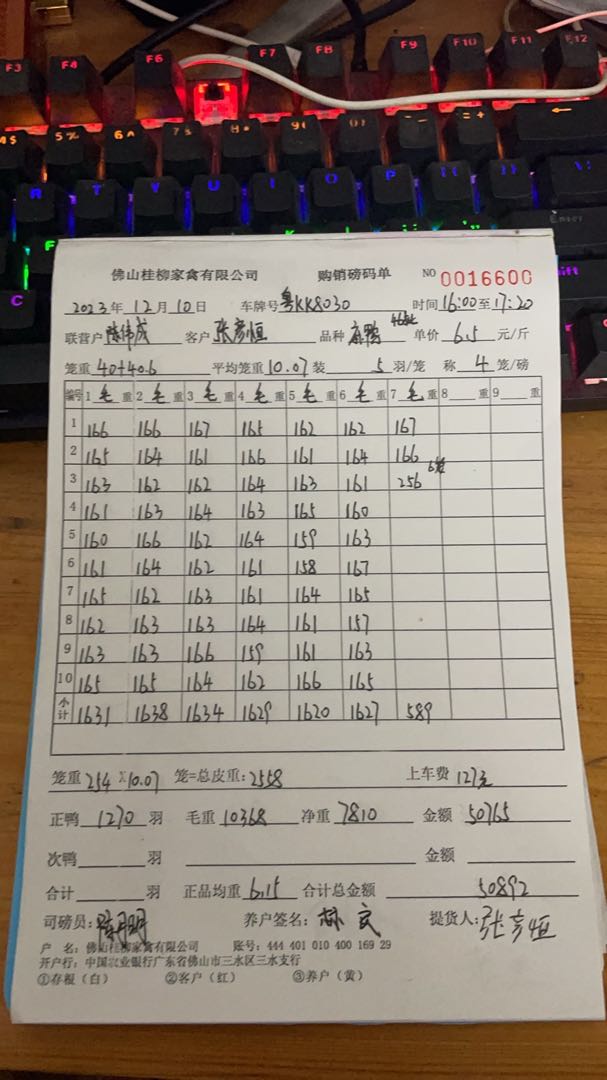 F3 F4 F6 F7 F8 F9 F10 F11 F12
佛山桂柳家禽有限公司 购销磅码单 NO 0016600
2023年12月10日 车牌号粤KK8030 时间16:00至17:20
联营户陈伟成 客户张彦恒 品种麻鸭 单价6.5元/斤
笼重40+40.6 平均笼重10.07装5羽/笼 称4笼/磅
编号 1毛重 2毛重 3毛重 4毛重 5毛重 6毛重 7毛重 8重 9重
1 166 166 167 165 162 162 167
2 165 164 161 166 161 164 166
3 163 162 162 164 163 161 256 6笼
4 161 163 164 163 165 160
5 160 166 162 164 159 163
6 161 164 162 161 158 167
7 165 162 163 161 164 165
8 162 163 163 164 161 157
9 163 163 166 159 161 163
10 165 165 164 162 166 165
小计 1631 1638 1634 1629 1620 1627 589
笼重254×10.07 笼=总皮重:2558 上车费127元
正鸭1270羽 毛重10368 净重7810 金额50765
次鸭 羽 金额
合计 羽 正品均重6.15 合计总金额50892
司磅员: 养户签名: 提货人:张彦恒
户 名: 佛山桂柳家禽有限公司 账号: 444 401 010 400 169 29
开户行: 中国农业银行广东省佛山市三水区三水支行
①存根(白) ②客户(红) ③养户(黄)